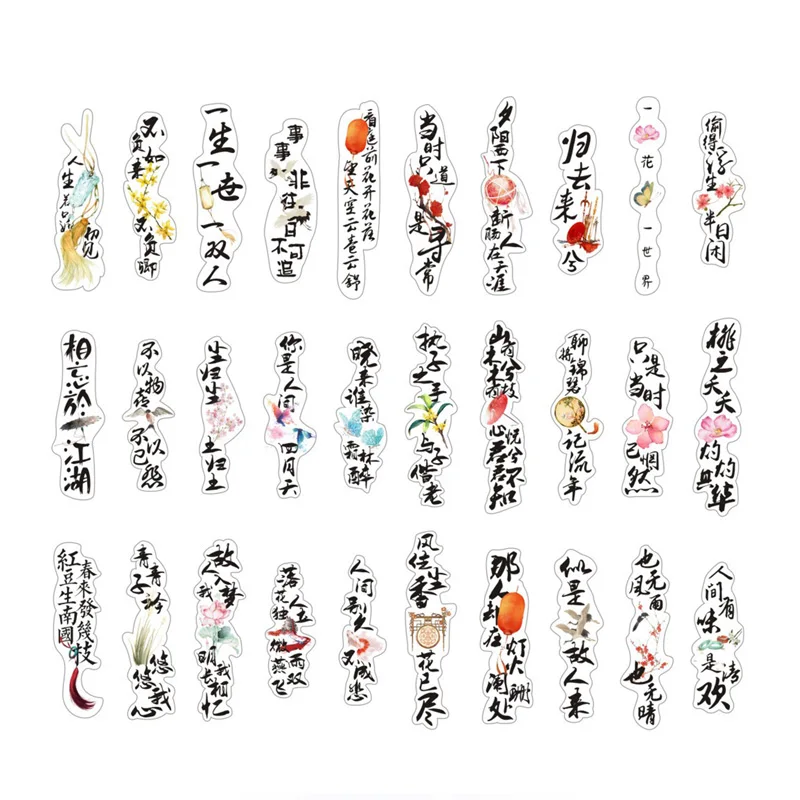 人生若只如初见
不负如来
不负卿
一生一世一双人
看庭前花开花落
望天空云卷云舒
当时只道是寻常
夕阳西下
断肠人在天涯
归去来兮
一花一世界
偷得浮生半日闲
相忘於江湖
不以物喜
不以己悲
生归生
土归土
你是人间四月天
晓来谁染霜林醉
执子之手
与子偕老
山有木兮木有枝
心悦君兮君不知
聊将锦瑟记流年
只是当时已惘然
桃之夭夭
灼灼其华
紅豆生南國
春來發幾枝
青青子衿
悠悠我心
故人入我梦
明我长相忆
落花人独立
微雨燕双飞
人间别久不成悲
风住尘香花已尽
那人却在
灯火阑珊处
似是故人来
也无风雨也无晴
人间有味是清欢